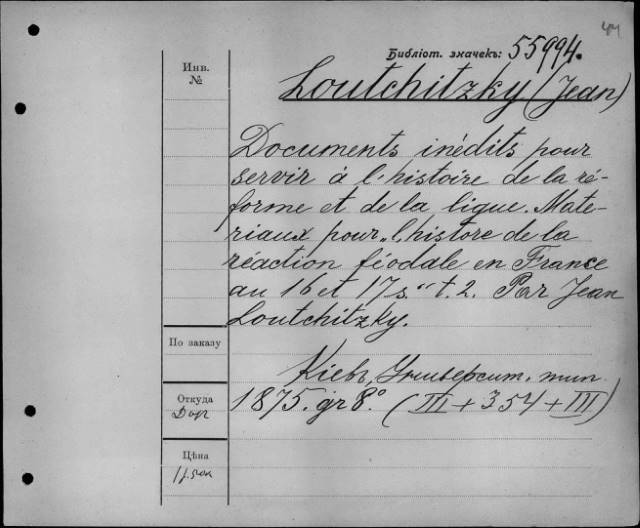 44
Библіот. значекъ: 55994.
Инв.
№
Loutchitzky (Jean)
Documents inédits pour
servir à l'histoire de la ré-
forme et de la ligue. Mate-
riaux pour „l'histore de la
réaction féodale en France
au 16 et 17 s." t. 2. Par Jean
Loutchitzky.
По заказу
Кіевъ, Университ. тип.
1875. gr 8.° (III + 354 + III)
Откуда
Дар
Цѣна